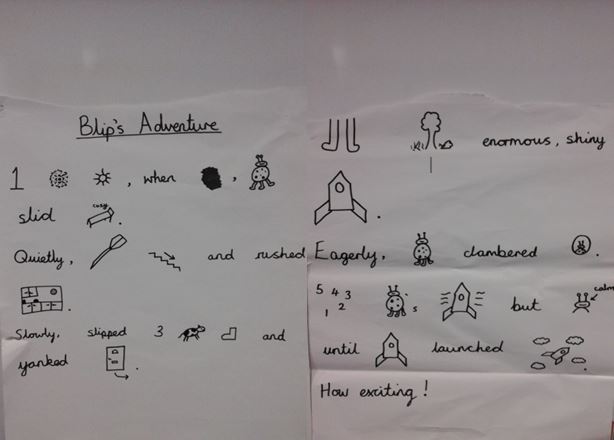 Blip's Adventure
1 , when ,
slid cosy .
Quietly, and rushed
.
Slowly, slipped 3 and
yanked .
enormous, shiny
.
Eagerly, clambered .
5 4 3 2 1 's but calm
until launched .
How exciting!